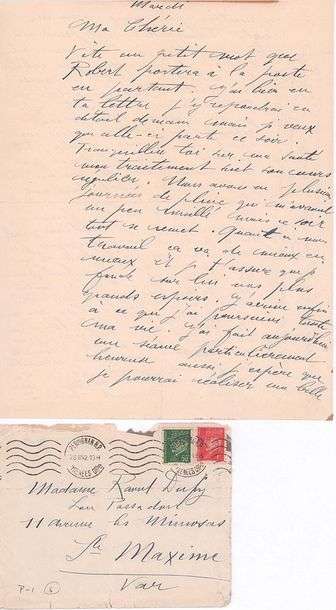 Mardi
Ma Chérie
Vite un petit mot que
Robert portera à la poste
en partant. J'ai bien eu
ta lettre j'y répondrai en
détail demain mais je veux
que celle-ci parte ce soir.
Tranquillise toi sur ma santé
mon traitement suit son cours
régulier. Nous avons eu plusieurs
journées de pluie qui m'avaient
un peu mais ce soir
tout se remet. Quant à mon
travail ça va de mieux en
mieux et je t'assure que je
fonde sur lui mes plus
grands espoirs. J'arrive enfin
à ce que j'ai poursuivi toute
ma vie. J'ai fait aujourd'hui
une séance particulièrement
heureuse aussi j'espère que
je pourrai réaliser une belle
PERPIGNAN R.P.
Madame Raoul Dufy
11 avenue les Mimosas
Ste Maxime
Var
P-1 6